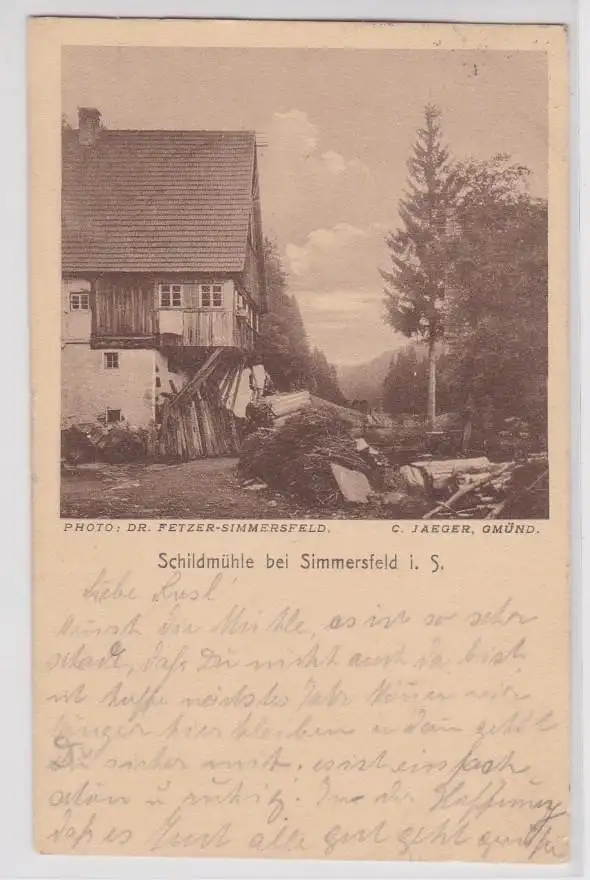 PHOTO: DR. FETZER-SIMMERSFELD. C. JAEGER, GMÜND.
Schildmühle bei Simmersfeld i. S.
Liebe
die Mühle, es ist so sehr
schade, daß Du nicht auch da bist
hoffe nächstes Jahr können wir
länger hier bleiben u dan gehst
Du sicher mit. es ist einfach
schön u ruhig. In der Hoffnung
daß es Euch alle gut geht